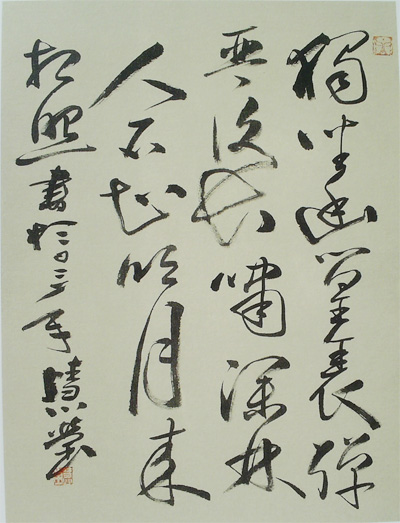 獨坐幽篁裏彈
琴復長嘯深林
人不知明月来
相照 書於 三年